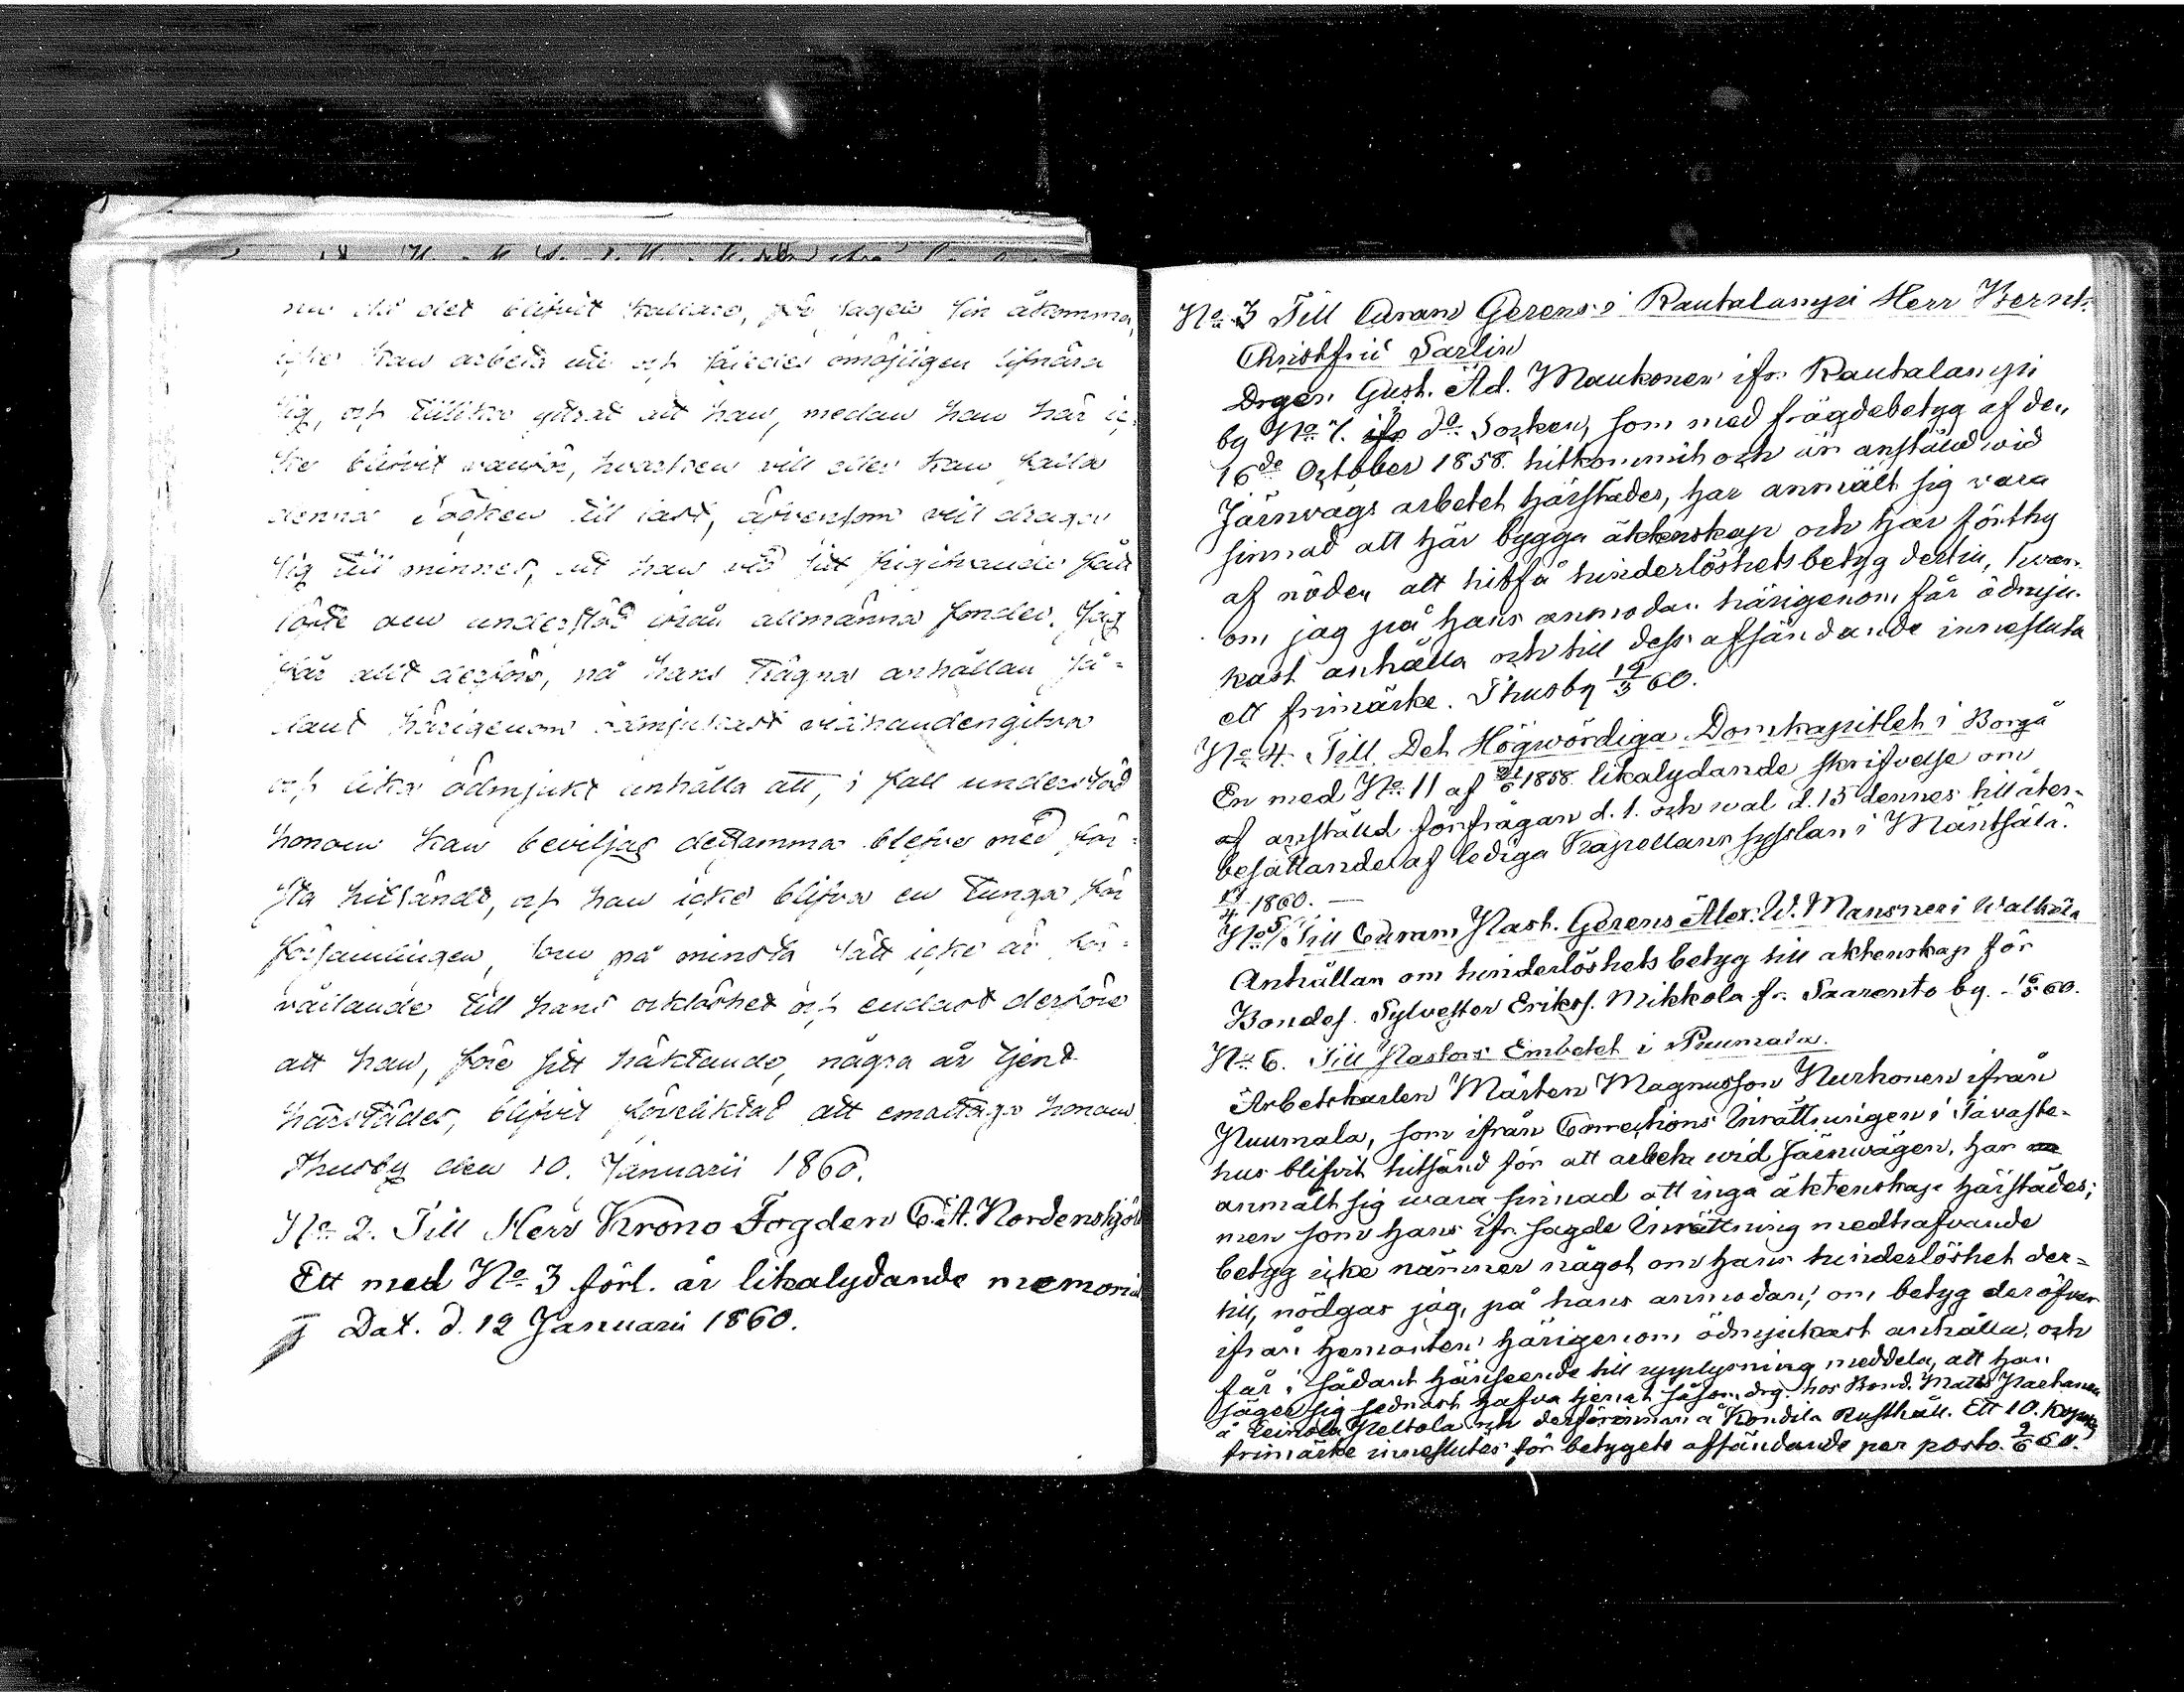 nu då det blifvit kallare, för sagde sin åkomma,
icke kan arbeta ute och således omöjligen lifnära
sig, och tillika yttrat att han, medan han här ic-
ke blifvit vanför, hvarken vill eller kan falla
denna Socken till last, äfvensom vill draga
sig till minnes, att han vid sitt frigifvande
lofte om understöd ifrån allmänna fonder. Jag
får alltderföre, på hans trägna anhållan så-
dant härigenom ödmjukast vidhandengifva
och lika ödmjukt anhålla att, i fall understöd
honom kan beviljas detsamma blefve med för-
sta hitsändt, och han icke blifva en tunga för
församlingen, som på minsta sätt icke är för-
vållande till hans ofärdighet och endast derföre
att han, före sitt häktande, några år tjent
härstädes, blifvit förpliktad att emottaga honom.
Thusby den 10. Januarii 1860.
No 2. Till Herr Krono Fogden C. A. Nordenskjöld
Ett med No 3 förl. år likalydande memorial
Dat. d. 12 Januarii 1860.
No 3 Till Curam Gerens i Rautalampi Herr Bernh.
Christfrid Sarlin
Drgen Gust. Ad. Maukonen ifr. Rautalampi
by No 7. ifr do Socken, som med frägdebetyg af den
16de October 1858. hitkommit och är anställd wid
Järnvägs arbetet härstädes, har anmält sig vara
sinnad att här bygga äktenskap och har förthy
af nöden att hitfå hinderlöshetsbetyg dertill, hvar-
om jag på hans anmodan härigenom får ödmju-
kast anhålla och till dess afsändande innesluta
ett frimärke. Thusby 19/3 60.
No 4. Till Det Högwördiga Domkapitlet i Borgå
En med No 11 af 21/6 1858. likalydande skrifvelse om
af anställd förfrågan d. 1. och wal d. 15 dennes till åter-
besättande af lediga Kapellans sysslan i Mäntsälä.
17/4 1860. —
No 5 Till Curam Past. Gerens Alex. W. Mansner i Walkiala
Anhållan om hinderlöshets betyg till äktenskap för
Bondes. Sylvester Eriks. Mikkola fr. Saarento by. - 16/5 60.
No 6. Till Pastors Embetet i Puumala.
Arbetskarlen Mårten Magnusson Hurhonen ifrån
Puumala, som ifrån Corrections Inrättningen i Tavaste-
hus blifvit hitsänd för att arbeta wid Järnwägen, har
anmält sig wara sinnad att ingå äktenskap härstädes;
men som hans ifr. sagde Inrättning medhafvande
betyg icke nämner något om hans hinderlöshet der-
till, nödgas jag, på hans anmodan, om betyg deröfver
ifrån hemorten härigenom ödmjukast anhålla, och
får i sådant hänseende till upplysning meddela, att han
säger sig sednast hafva tjenat såsom drg. hos Bond. Matts
å Peltola och derförinnan å Kondila Rusthåll. Ett 10. Kopeks
frimärke inneslutes för betygets afsändande per posto. 9/6 60.